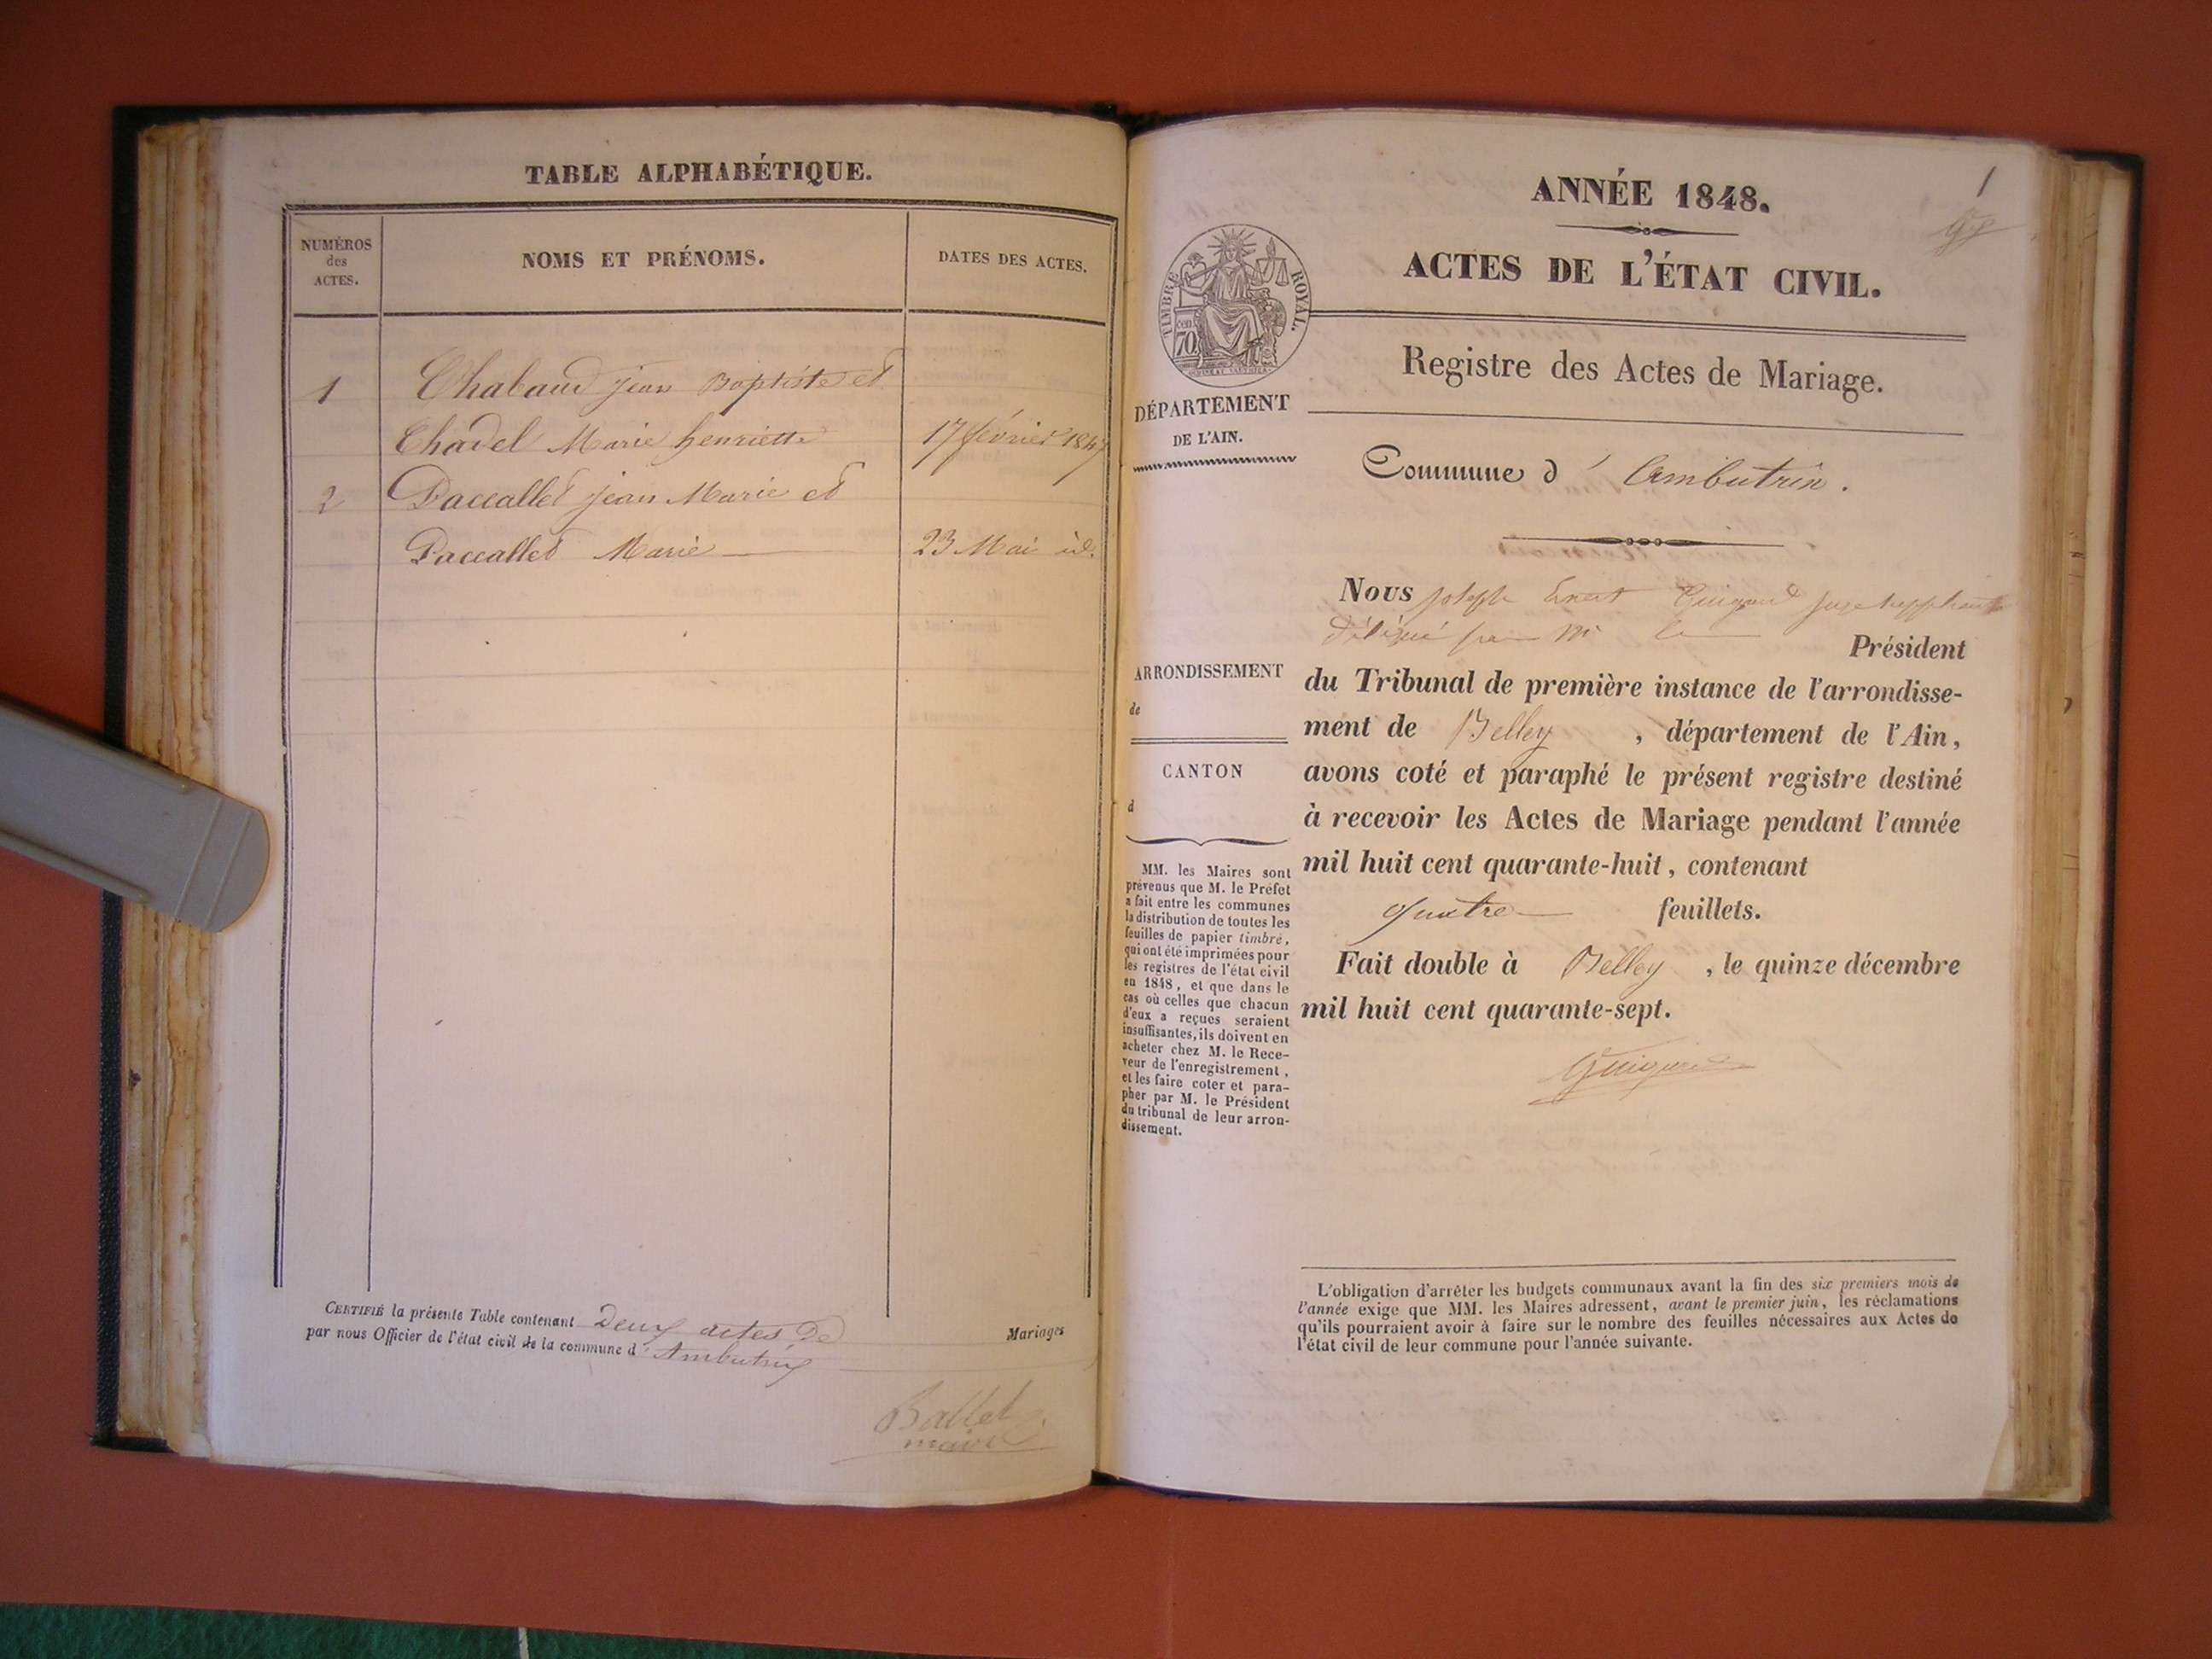 TABLE ALPHABÉTIQUE.
NUMÉROS
des
ACTES.
NOMS ET PRÉNOMS.
DATES DES ACTES.
1 Chabaud jean Baptiste et
Chadel Marie henriette 17 février 1847
2 Paccallet jean Marie et
Paccallet Marie 23 Mai id.
CERTIFIÉ la présente Table contenant Deux actes De Mariages
par nous Officier de l'état civil de la commune d' Ambutrix
Ballet
maire
1
ANNÉE 1848.
ACTES DE L'ÉTAT CIVIL.
TIMBRE ROYAL.
cen. 70
Registre des Actes de Mariage.
DÉPARTEMENT
DE L'AIN.
Commune d' Ambutrix.
ARRONDISSEMENT
de
CANTON
d
MM. les Maires sont
prévenus que M. le Préfet
a fait entre les communes
la distribution de toutes les
feuilles de papier timbré,
qui ont été imprimées pour
les registres de l'état civil
en 1848, et que dans le
cas où celles que chacun
d'eux a reçues seraient
insuffisantes, ils doivent en
acheter chez M. le Rece-
veur de l'enregistrement,
et les faire coter et para-
pher par M. le Président
du tribunal de leur arron-
dissement.
Nous joseph Guigard juge suppléant
délégué par Mr le Président
du Tribunal de première instance de l'arrondisse-
ment de Belley, département de l'Ain,
avons coté et paraphé le présent registre destiné
à recevoir les Actes de Mariage pendant l'année
mil huit cent quarante-huit, contenant
quatre feuillets.
Fait double à Belley, le quinze décembre
mil huit cent quarante-sept.
Guigard
L'obligation d'arrêter les budgets communaux avant la fin des six premiers mois de
l'année exige que MM. les Maires adressent, avant le premier juin, les réclamations
qu'ils pourraient avoir à faire sur le nombre des feuilles nécessaires aux Actes de
l'état civil de leur commune pour l'année suivante.